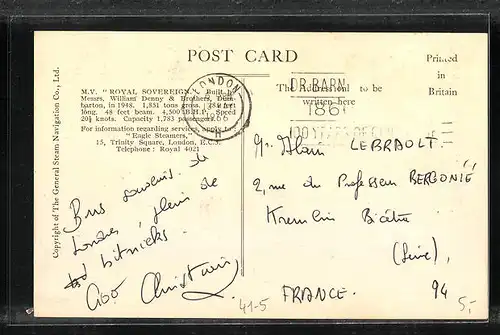 POST CARD
Printed
in
Britain
M.V. "ROYAL SOVEREIGN." Built by
Messrs. William Denny & Brothers, Dum-
barton, in 1948. 1,851 tons gross. 288 feet
long. 48 feet beam. 4,500 B.H.P. Speed
20½ knots. Capacity 1,783 passengers.
For information regarding services, apply to:
"Eagle Steamers,"
15, Trinity Square, London, E.C.3.
Telephone: Royal 4021
Copyright of The General Steam Navigation Co., Ltd.
LONDON
DR BARN
186
100 YEARS OF
The Address only to be
written here
Bons souvenirs de
Londres, plein de
bitnicks.
Christian
Alain LEBRAULT.
2, rue du Professeur BERGONIÉ
Kremlin Bicêtre
(Seine),
FRANCE. 94
41-5
5,-